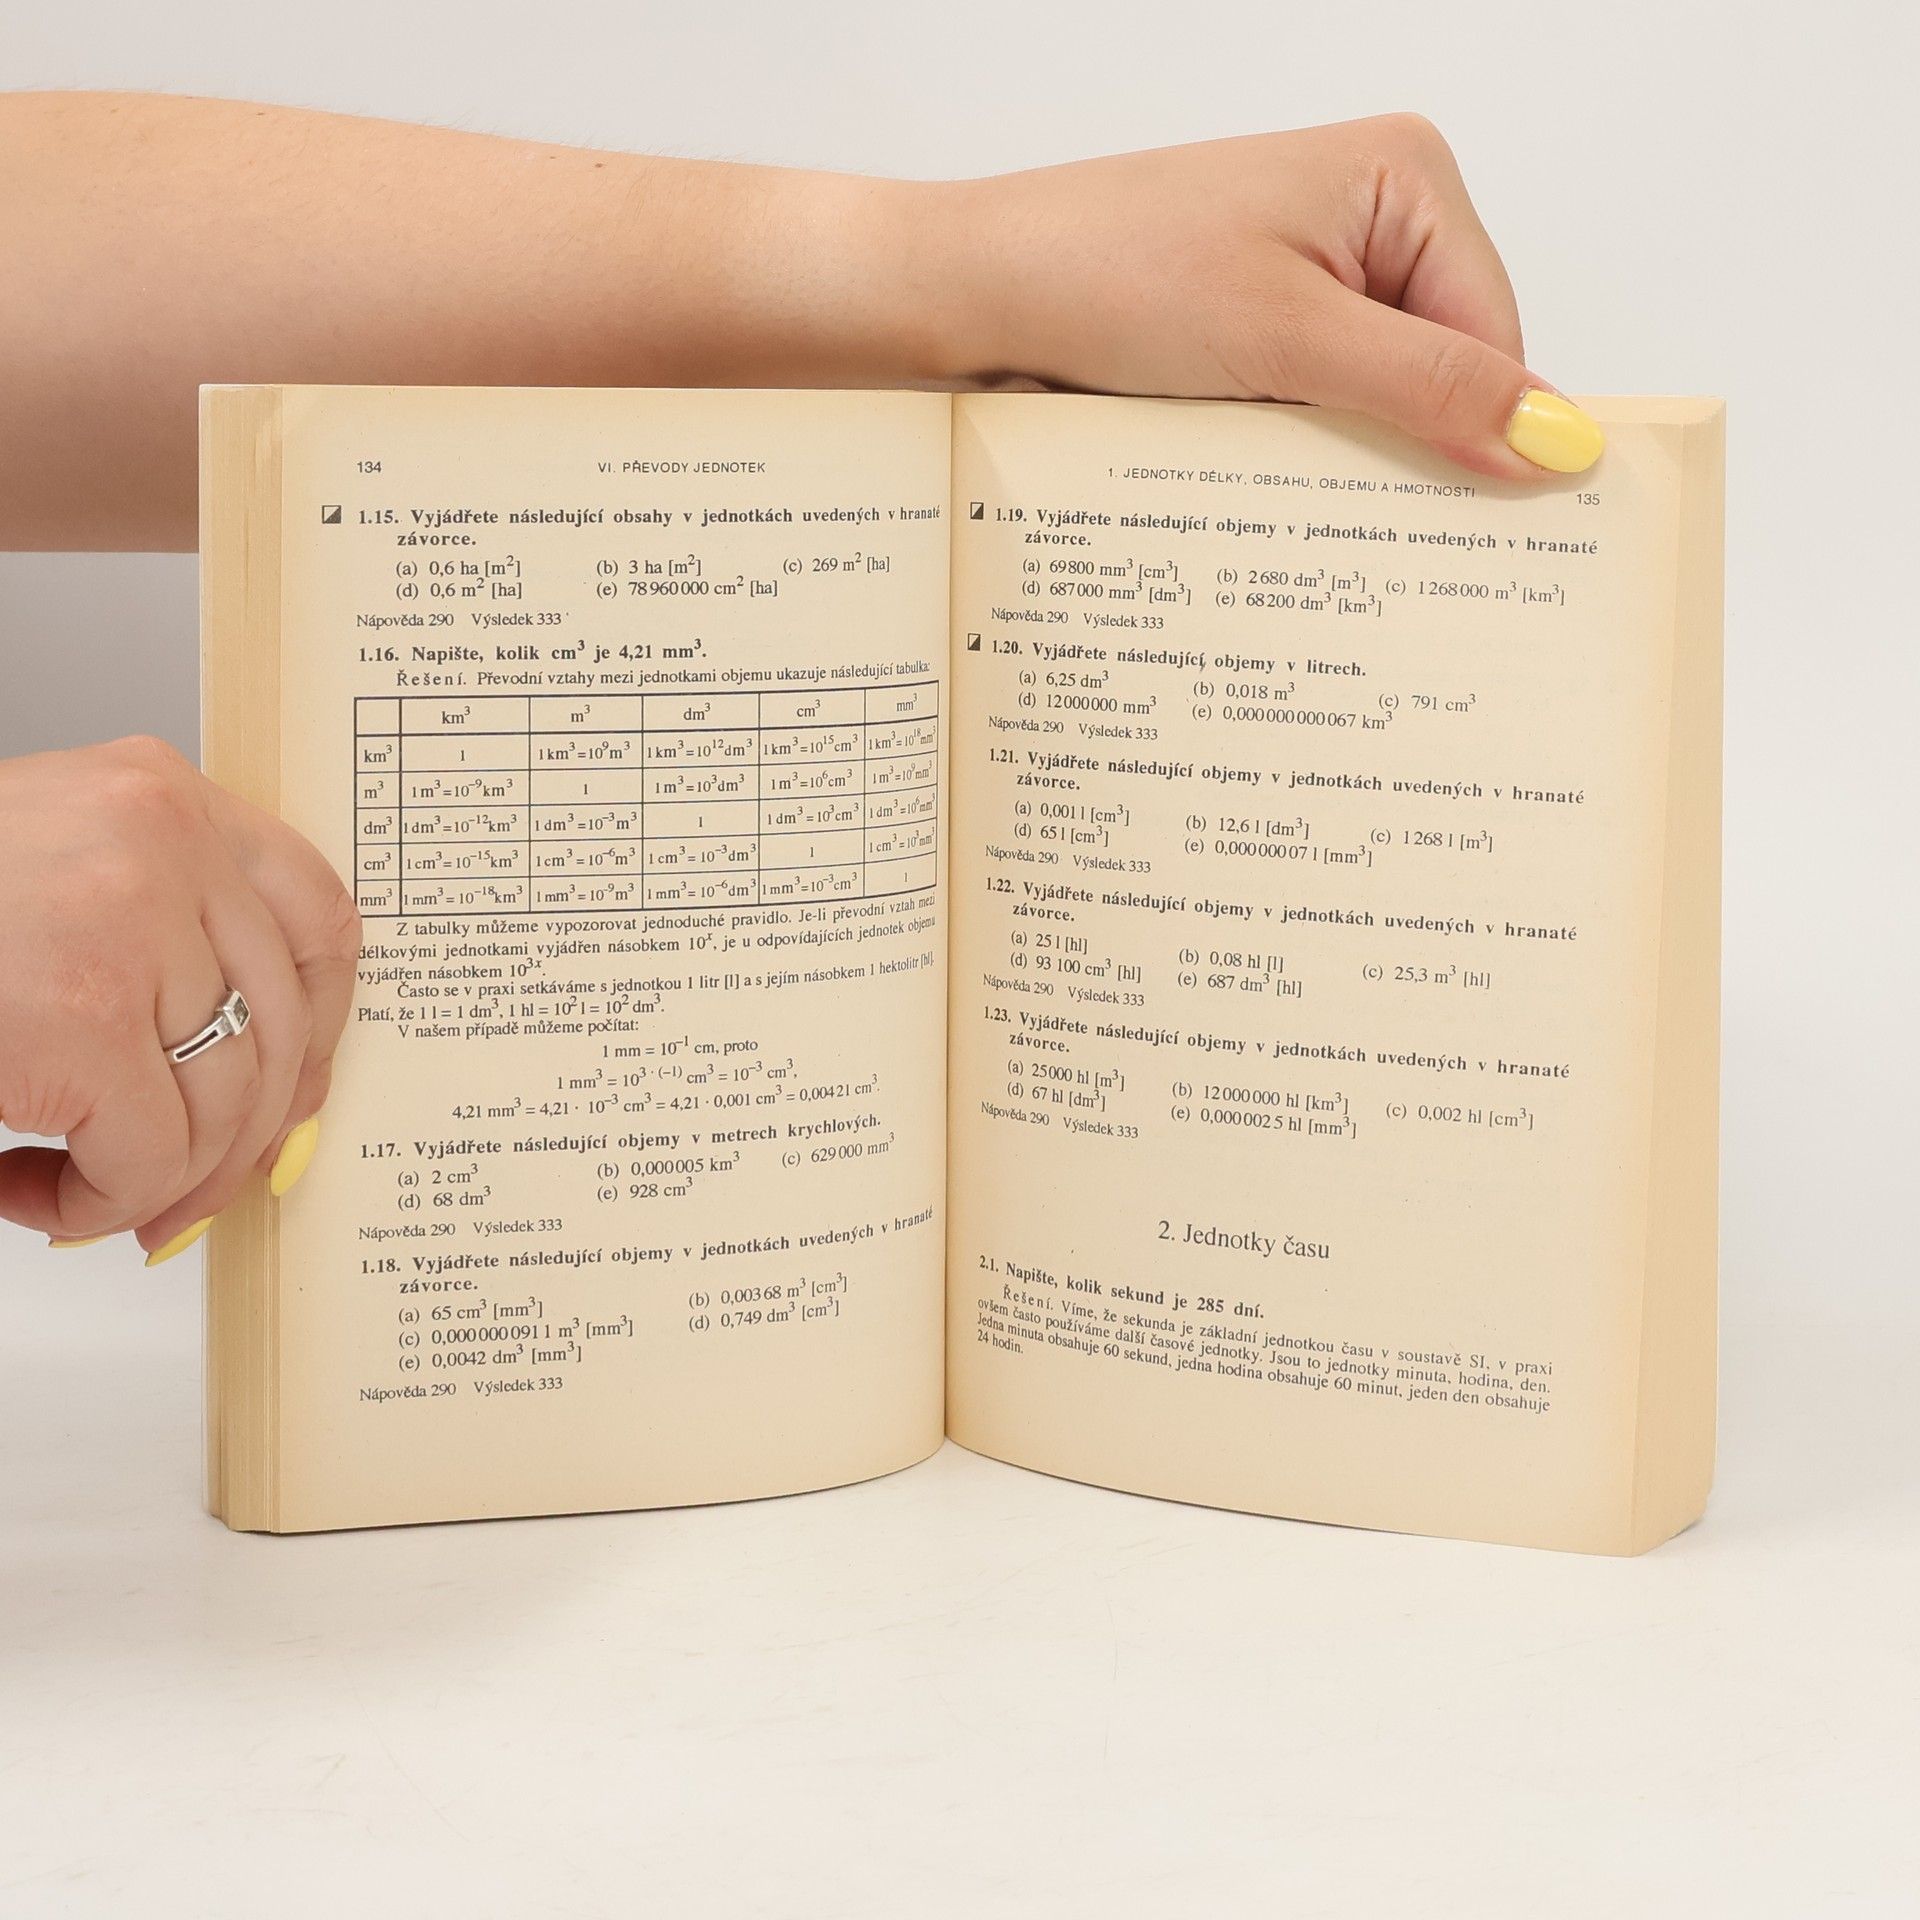 134
VI. PŘEVODY JEDNOTEK
1.15. Vyjádřete následující obsahy v jednotkách uvedených v hranaté
závorce.
(a) 0,6 ha [m²] (b) 3 ha [m²] (c) 269 m² [ha]
(d) 0,6 m² [ha] (e) 78 960 000 cm² [ha]
Nápověda 290 Výsledek 333
1.16. Napište, kolik cm³ je 4,21 mm³.
Řešení. Převodní vztahy mezi jednotkami objemu ukazuje následující tabulka:
km³ m³ dm³ cm³ mm³
km³ 1 1 km³=10⁹m³ 1 km³=10¹²dm³ 1 km³=10¹⁵cm³ 1 km³=10¹⁸mm³
m³ 1 m³=10⁻⁹km³ 1 1 m³=10³dm³ 1 m³=10⁶cm³ 1 m³=10⁹mm³
dm³ 1 dm³=10⁻¹²km³ 1 dm³=10⁻³m³ 1 1 dm³=10³cm³ 1 dm³=10⁶mm³
cm³ 1 cm³=10⁻¹⁵km³ 1 cm³=10⁻⁶m³ 1 cm³=10⁻³dm³ 1 1 cm³=10³mm³
mm³ 1 mm³=10⁻¹⁸km³ 1 mm³=10⁻⁹m³ 1 mm³=10⁻⁶dm³ 1 mm³=10⁻³cm³ 1
Z tabulky můžeme vypozorovat jednoduché pravidlo. Je-li převodní vztah mezi
délkovými jednotkami vyjádřen násobkem 10ˣ, je u odpovídajících jednotek objemu
vyjádřen násobkem 10³ˣ.
Často se v praxi setkáváme s jednotkou 1 litr [l] a s jejím násobkem 1 hektolitr [hl].
Platí, že 1 l = 1 dm³, 1 hl = 10² l = 10² dm³.
V našem případě můžeme počítat:
1 mm = 10⁻¹ cm, proto
1 mm³ = 10³ · ⁽⁻¹⁾ cm³ = 10⁻³ cm³,
4,21 mm³ = 4,21 · 10⁻³ cm³ = 4,21 · 0,001 cm³ = 0,004 21 cm³.
1.17. Vyjádřete následující objemy v metrech krychlových.
(a) 2 cm³ (b) 0,000 005 km³ (c) 629 000 mm³
(d) 68 dm³ (e) 928 cm³
Nápověda 290 Výsledek 333
1.18. Vyjádřete následující objemy v jednotkách uvedených v hranaté
závorce.
(a) 65 cm³ [mm³] (b) 0,003 68 m³ [cm³]
(c) 0,000 000 091 1 m³ [mm³] (d) 0,749 dm³ [cm³]
(e) 0,0042 dm³ [mm³]
Nápověda 290 Výsledek 333
1. JEDNOTKY DÉLKY, OBSAHU, OBJEMU A HMOTNOSTI
135
1.19. Vyjádřete následující objemy v jednotkách uvedených v hranaté
závorce.
(a) 69 800 mm³ [cm³] (b) 2 680 dm³ [m³] (c) 1 268 000 m³ [km³]
(d) 687 000 mm³ [dm³] (e) 68 200 dm³ [km³]
Nápověda 290 Výsledek 333
1.20. Vyjádřete následující objemy v litrech.
(a) 6,25 dm³ (b) 0,018 m³ (c) 791 cm³
(d) 12 000 000 mm³ (e) 0,000 000 000 067 km³
Nápověda 290 Výsledek 333
1.21. Vyjádřete následující objemy v jednotkách uvedených v hranaté
závorce.
(a) 0,001 l [cm³] (b) 12,6 l [dm³] (c) 1 268 l [m³]
(d) 65 l [cm³] (e) 0,000 000 07 l [mm³]
Nápověda 290 Výsledek 333
1.22. Vyjádřete následující objemy v jednotkách uvedených v hranaté
závorce.
(a) 25 l [hl] (b) 0,08 hl [l] (c) 25,3 m³ [hl]
(d) 93 100 cm³ [hl] (e) 687 dm³ [hl]
Nápověda 290 Výsledek 333
1.23. Vyjádřete následující objemy v jednotkách uvedených v hranaté
závorce.
(a) 25 000 hl [m³] (b) 12 000 000 hl [km³] (c) 0,002 hl [cm³]
(d) 67 hl [dm³] (e) 0,000 002 5 hl [mm³]
Nápověda 290 Výsledek 333
2. Jednotky času
2.1. Napište, kolik sekund je 285 dní.
Řešení. Víme, že sekunda je základní jednotkou času v soustavě SI, v praxi
ovšem často používáme další časové jednotky. Jsou to jednotky minuta, hodina, den.
Jedna minuta obsahuje 60 sekund, jedna hodina obsahuje 60 minut, jeden den obsahuje
24 hodin.